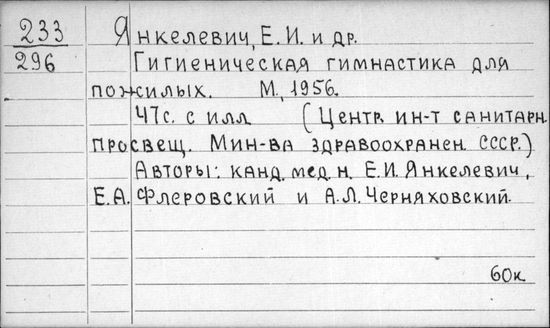 233 Янкелевич, Е.И. и др.
296 Гигиеническая гимнастика для
пожилых. М., 1956.
47с. с илл (Центр. ин-т санитарн.
просвещ. Мин-ва здравоохранен. СССР.)
Авторы: канд. мед. н. Е.И. Янкелевич,
Е.А. Флеровский и А.Л. Черняховский.
60к